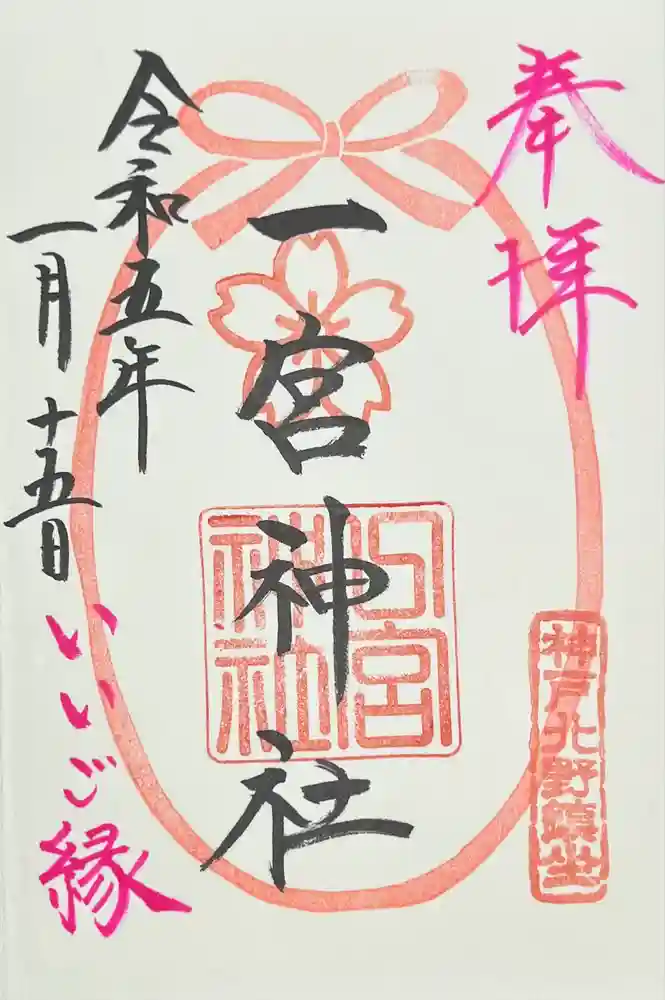 奉拝
神戸北野鎮坐
一宮神社
一宮神社
令和五年
一月十五日
いいご縁